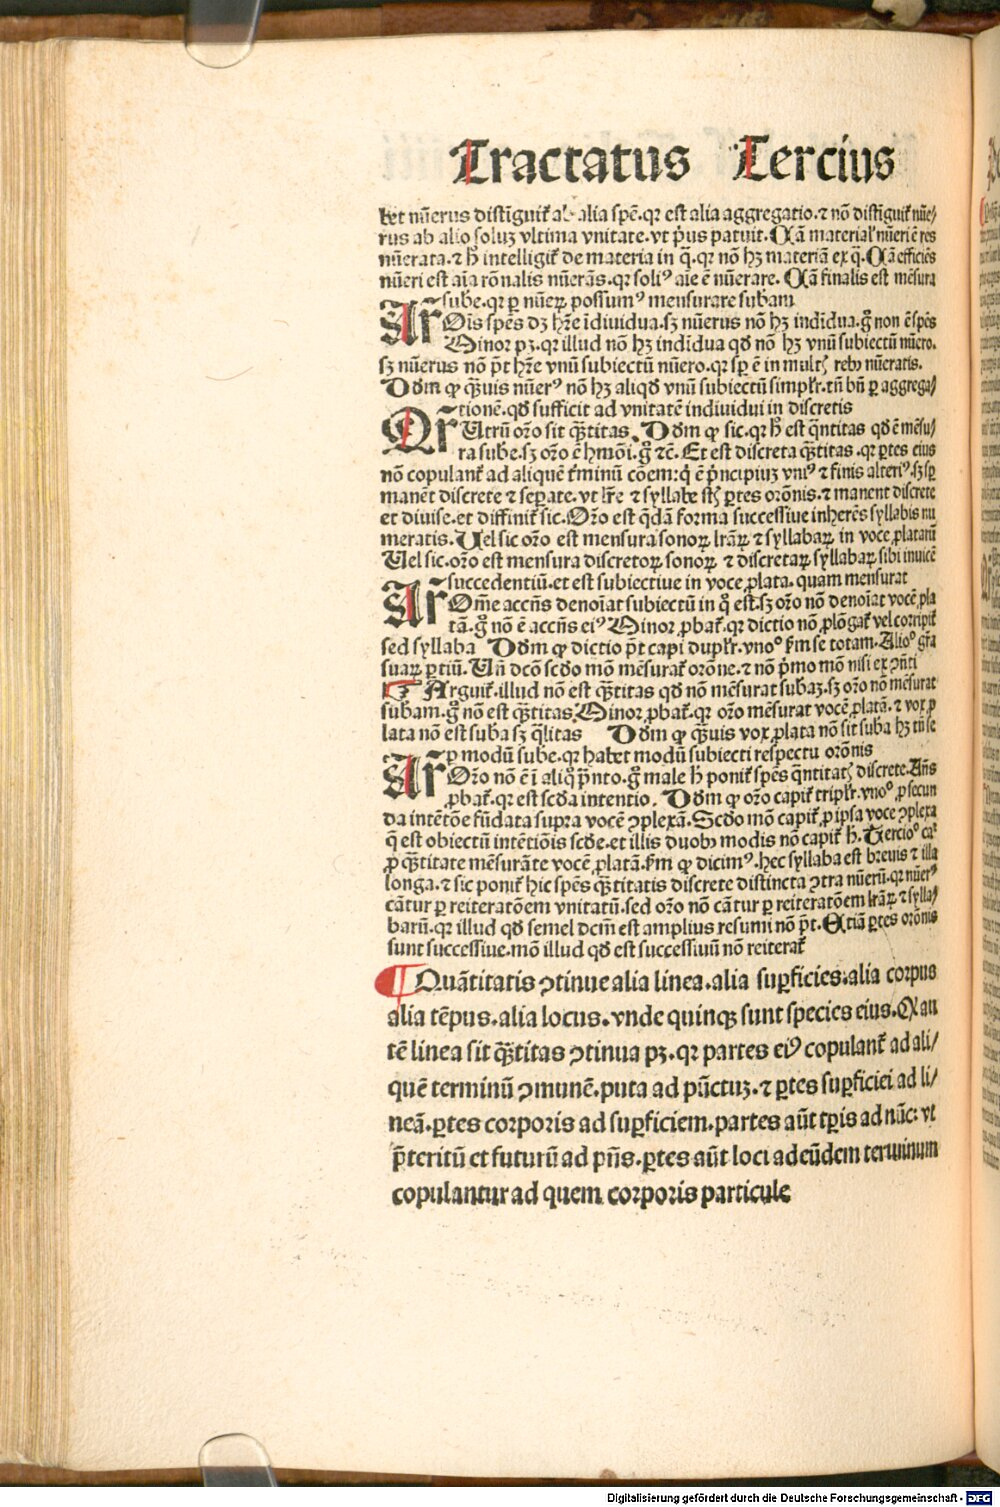 Tractatus Tercius
bet nūerus distīguit᷑ ab alia spē. qꝛ est alia aggregatio. ⁊ nō distīguit᷑ nūe/
rus ab alio soluꝫ vltima vnitate. vt p̄us patuit. Cā material' nūeri ē res
nūerata. ⁊ h̄ intelligit᷑ de materia in q̄. qꝛ nō hꝫ materiā ex q̄. Cā efficiēs
nūeri est aīa rōnalis nūerās. qꝛ soliꝰ aīe ē nūerare. Cā finalis est mēsura
sube. qꝛ ꝑ nūeꝝ possumꝰ mensurare subam
Ar̄ Oīs spēs dꝫ hr̄e īdiuidua. sꝫ nūerus nō hꝫ indiuidua. gͦ non ē spēs
Minor pꝫ. qꝛ illud nō hꝫ indiuidua qd̄ nō hꝫ vnū subiectū nūero.
sꝫ nūerus nō p̄t hr̄e vnū subiectū nūero. qꝛ sꝑ ē in multꝭ rebꝰ nūeratis.
Dd̄m ꝙ q̄uis nūerꝰ nō hꝫ aliqd̄ vnū subiectū simplr̄. tn̄ bn̄ ꝑ aggrega/
tionē. qd̄ sufficit ad vnitatē indiuidui in discretis
Qr̄ Utrū or̄o sit q̄titas. Dd̄m ꝙ sic. qꝛ h̄ est q̄ntitas qd̄ ē mēsu/
ra sube. sꝫ or̄o ē hmōi. gͦ ⁊c̄. Et est discreta q̄titas. qꝛ ꝑtes eius
nō copulant᷑ ad aliquē t̄minū cōem: q̄ ē p̄ncipiuꝫ vniꝰ ⁊ finis alteriꝰ. sꝫ sꝑ
manēt discrete ⁊ seꝑate. vt lr̄e ⁊ syllabe st̄ ꝑtes orōnis. ⁊ manent discrete
et diuise. et diffinit᷑ sic. Or̄o est qdā forma successiue inherēs syllabis nu
meratis. Uel sic or̄o est mensura sonoꝝ lr̄aꝝ ⁊ syllabaꝝ in voce ꝓlatarū
Uel sic. or̄o est mensura discretoꝝ sonoꝝ ⁊ discretaꝝ syllabaꝝ sibi inuicē
succedentiū. et est subiectiue in voce ꝓlata. quam mensurat
Ar̄ Om̄e accn̄s denoīat subiectū in qͦ est. sꝫ or̄o nō denoīat vocē ꝓla
tā. gͦ nō ē accn̄s eiꝰ Minor ꝓbat᷑. qꝛ dictio nō ꝓlōgat᷑ vel corripit᷑
sed syllaba Dd̄m ꝙ dictio p̄t capi duplr̄. vnoͦ fm se totam. Alioͦ gr̄a
suaꝝ ꝑtiū. Un̄ dcō scdo mō mēsurat᷑ orōne. ⁊ nō p̄mo mō nisi ex ꝯn̄ti
¶ ⁊ Arguit᷑. illud nō est q̄titas qd̄ nō mēsurat subaꝫ. sꝫ or̄o nō mēsurat
subam. gͦ nō est q̄titas Minor ꝓbat᷑. qꝛ or̄o mēsurat vocē ꝓlatā. ⁊ vox ꝓ
lata nō est suba sꝫ q̄litas Dd̄m ꝙ q̄uis vox ꝓlata nō sit suba hꝫ tn̄ se
ꝑ modū sube. qꝛ habet modū subiecti respectu orōnis
Ar̄ Or̄o nō ē ī aliqͦ p̄nto. gͦ male h̄ ponit᷑ spēs q̄ntitatꝭ discrete. Ans̄
ꝓbat᷑. qꝛ est scd̄a intentio. Dd̄m ꝙ or̄o capit᷑ triplr̄. vnoͦ ꝓ secun
da intētōe fūdata supra vocē ꝯplexā. Scd̄o mō capit᷑ ꝓ ipsa voce ꝯplexa
q̄ est obiectū intētiōis scd̄e. et illis duobꝰ modis nō capit᷑ h̄. Tercioͦ caᷣ
ꝓ q̄titate mēsurāte vocē ꝓlatā. fm ꝙ dicimꝰ. hec syllaba est breuis ⁊ illa
longa. ⁊ sic ponit᷑ hic spēs q̄titatis discrete distincta ꝯtra nūerū. qꝛ nūerꝰ
cātur ꝑ reiteratōem vnitatū. sed or̄o nō cātur ꝑ reiteratōem lr̄aꝝ ⁊ sylla/
barū. qꝛ illud qd̄ semel dcm̄ est amplius resumi nō p̄t. Etiā ꝑtes orōnis
sunt successiue. mō illud qd̄ est successiuū nō reiterat᷑
¶ Quātitatis ꝯtinue alia linea. alia suꝑficies. alia corpus
alia tēpus. alia locus. vnde quinqꝫ sunt species eius. Q̄ au
tē linea sit q̄titas ꝯtinua pꝫ. qꝛ partes eiꝰ copulant᷑ ad ali/
quē terminū ꝯmunē. puta ad pūctuꝫ. ⁊ ꝑtes suꝑficiei ad li/
neā. ꝑtes corporis ad suꝑficiem. partes aūt tꝑis ad nūc: vt
p̄teritū et futurū ad pn̄s. ꝑtes aūt loci ad eūdem terminum
copulantur ad quem corporis particule
Digitalisierung gefördert durch die Deutsche Forschungsgemeinschaft - DFG